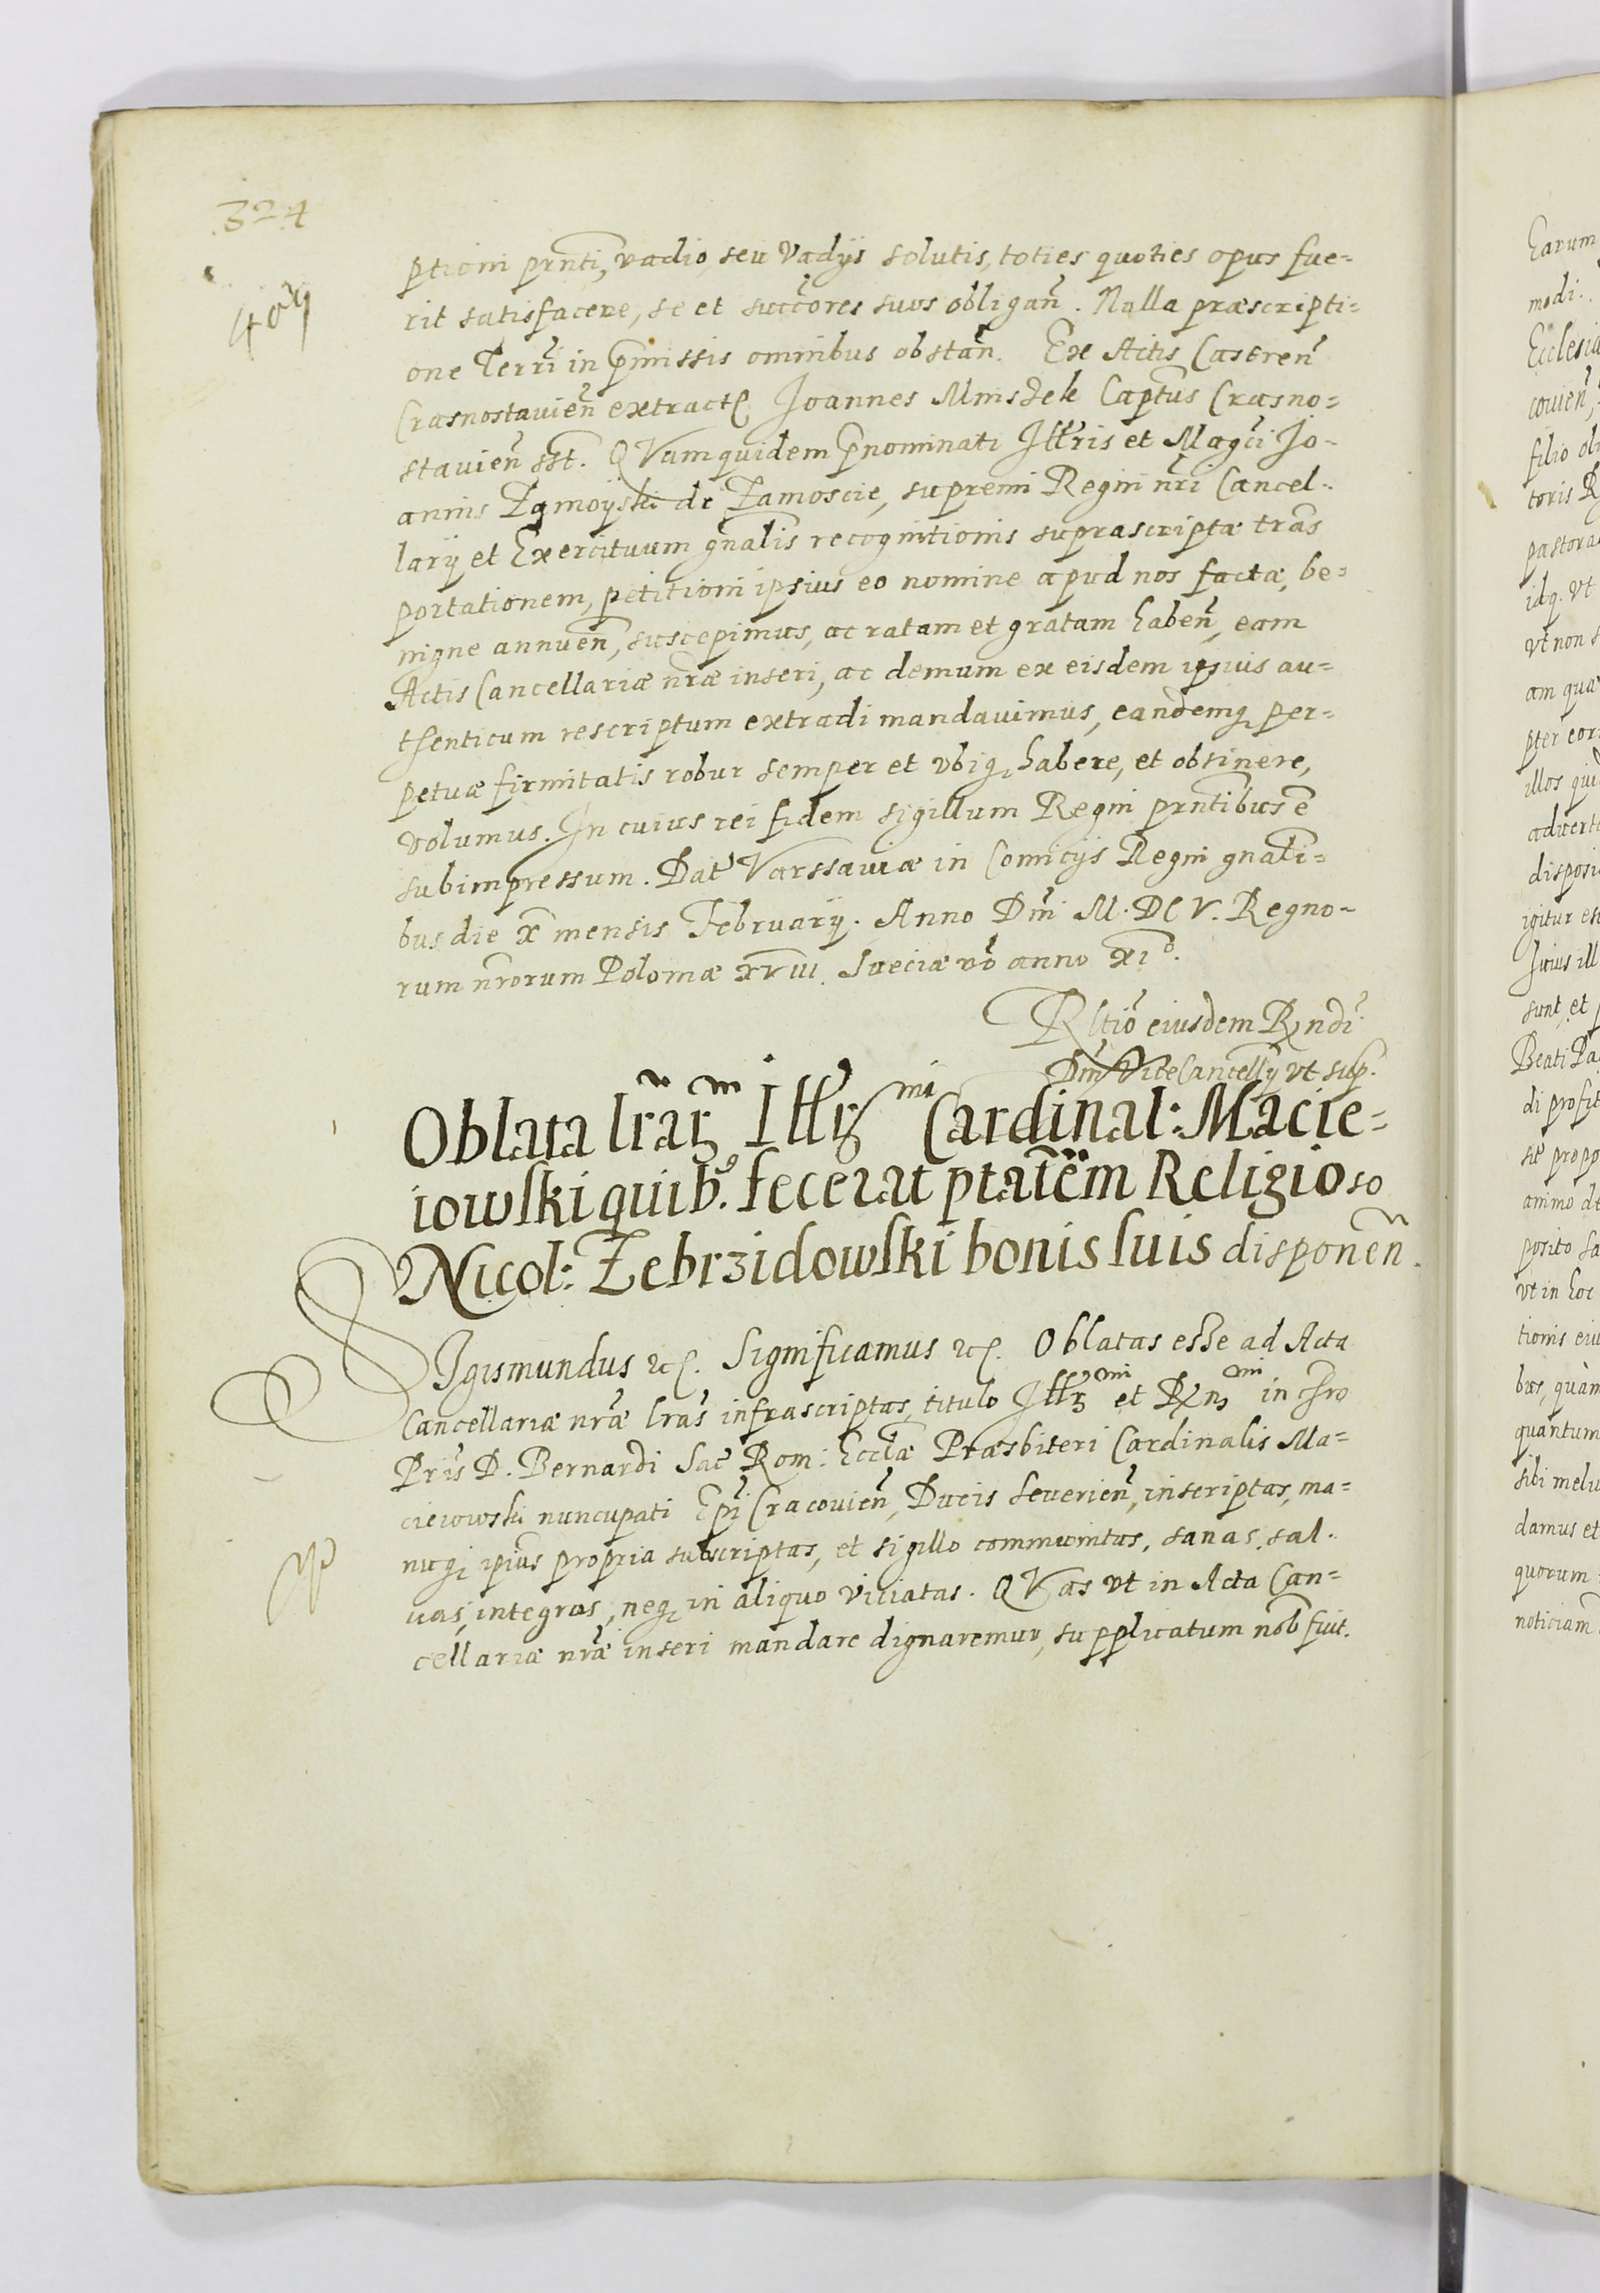 324
ptioni prnti, vadio seu vadijs solutis, toties quoties opus fue-
rit satisfacere, se et succores suos obligan̄. Nulla præscripti-
one Terri in p̄missis omnibus obstan̄. Ex Actis Castren̄
Crasnostauien̄ extract. Joannes Mniszek Captus Crasno-
stavien̄ sst. QVam quidem p̄nominati Illris et Magci Jo-
annis Zamoÿski de Zamoscie, supremi Regni nri Cancel-
larÿ et Exercituum gnalis recognitionis suprascriptæ trans
portationem, petitioni ipsius eo nomine apud nos factæ, be-
nigne annuen̄, suscepimus, ac ratam et gratam haben̄, eam
Actis Cancellariæ nræ inseri, ac demum ex eisdem ipsius au-
thenticum rescriptum extradi mandavimus, eandemq per-
petuæ firmitatis robur semper et vbiq habere, et obtinere,
volumus. In cuius rei fidem sigillum Regni prntibus ē
subimpressum. Dat Varssaviæ in Comitÿs Regni gnali-
bus die x mensis Februarÿ. Anno Dni M.DC V. Regno-
rum nrorum Poloniæ xvııı. Sueciæ vo anno xıº.
Rltio eiusdem Rndi
Dni ViceCancellÿ vt sup.
Oblata lrarum Illrmi Cardinal: Macie-
iowski quib. fecerat ptatem Religioso
Nicol: Zebrzidowski bonis suis disponen̄.
SIgismundus etc. Significamus etc. Oblatas esse ad Acta
Cancellariæ nræ lras infrascriptas, titulo Illrmi et Rnmi in Chro
Pris D. Bernardi Sac Rom: Eccliæ Præsbiteri Cardinalis Ma-
cieiowski nuncupati Epi Cracovien̄, Ducis Severien̄, inscriptas, ma-
nuq ipius propria subscriptas, et sigillo communitas, sanas, sal-
uas, integras, neq in aliquo vitiatas. QVas vt in Acta Can-
cellariæ nræ inseri mandare dignaremur, supplicatum nob fuit.